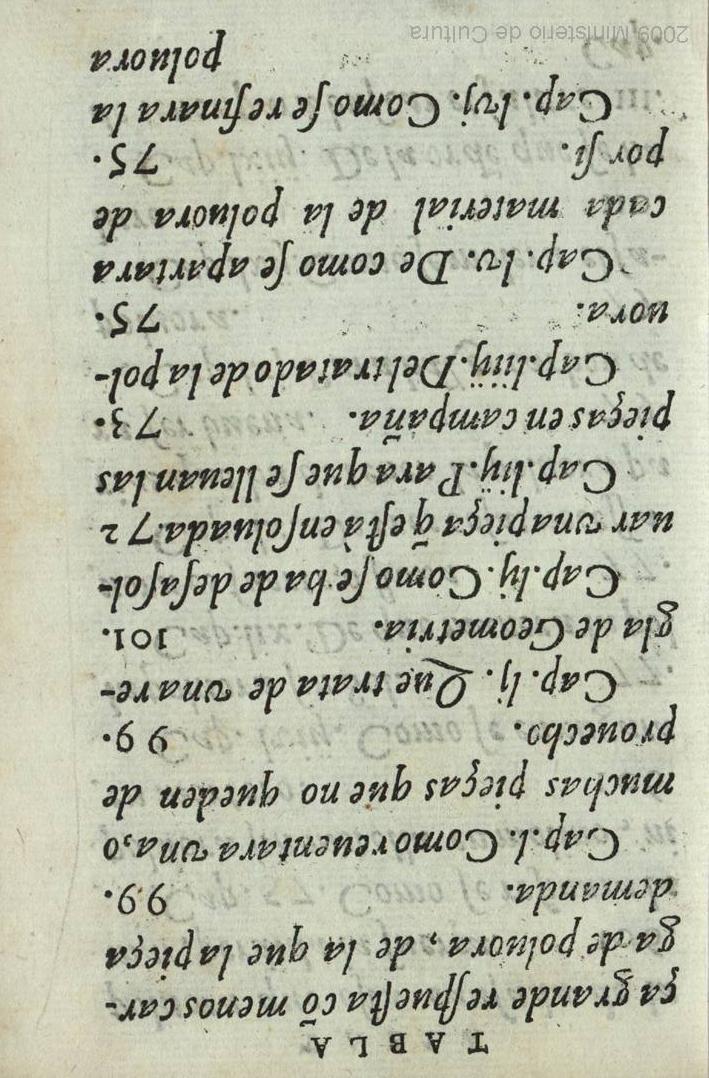 TABLA
ça grande respuesta cõ menos car-
ga de poluora, de la que la pieça
demanda. 99.
Cap. l. Como reuentara vna, o
muchas pieças que no queden de
prouecho. 99.
Cap. lj. Que trata de vna re-
gla de Geometria. 101.
Cap. lij. Como se ha de desafol-
uar vna pieça q̃ està ensoluada. 72
Cap. liij. Para que se lleuan las
pieças en campaña. 73.
Cap. liiij. Del tratado de la pol-
uora. 75.
Cap. lv. De como se apartara
cada material de la poluora de
por si. 75.
Cap. lvj. Como se refinara la
poluora
2009 Ministerio de Cultura